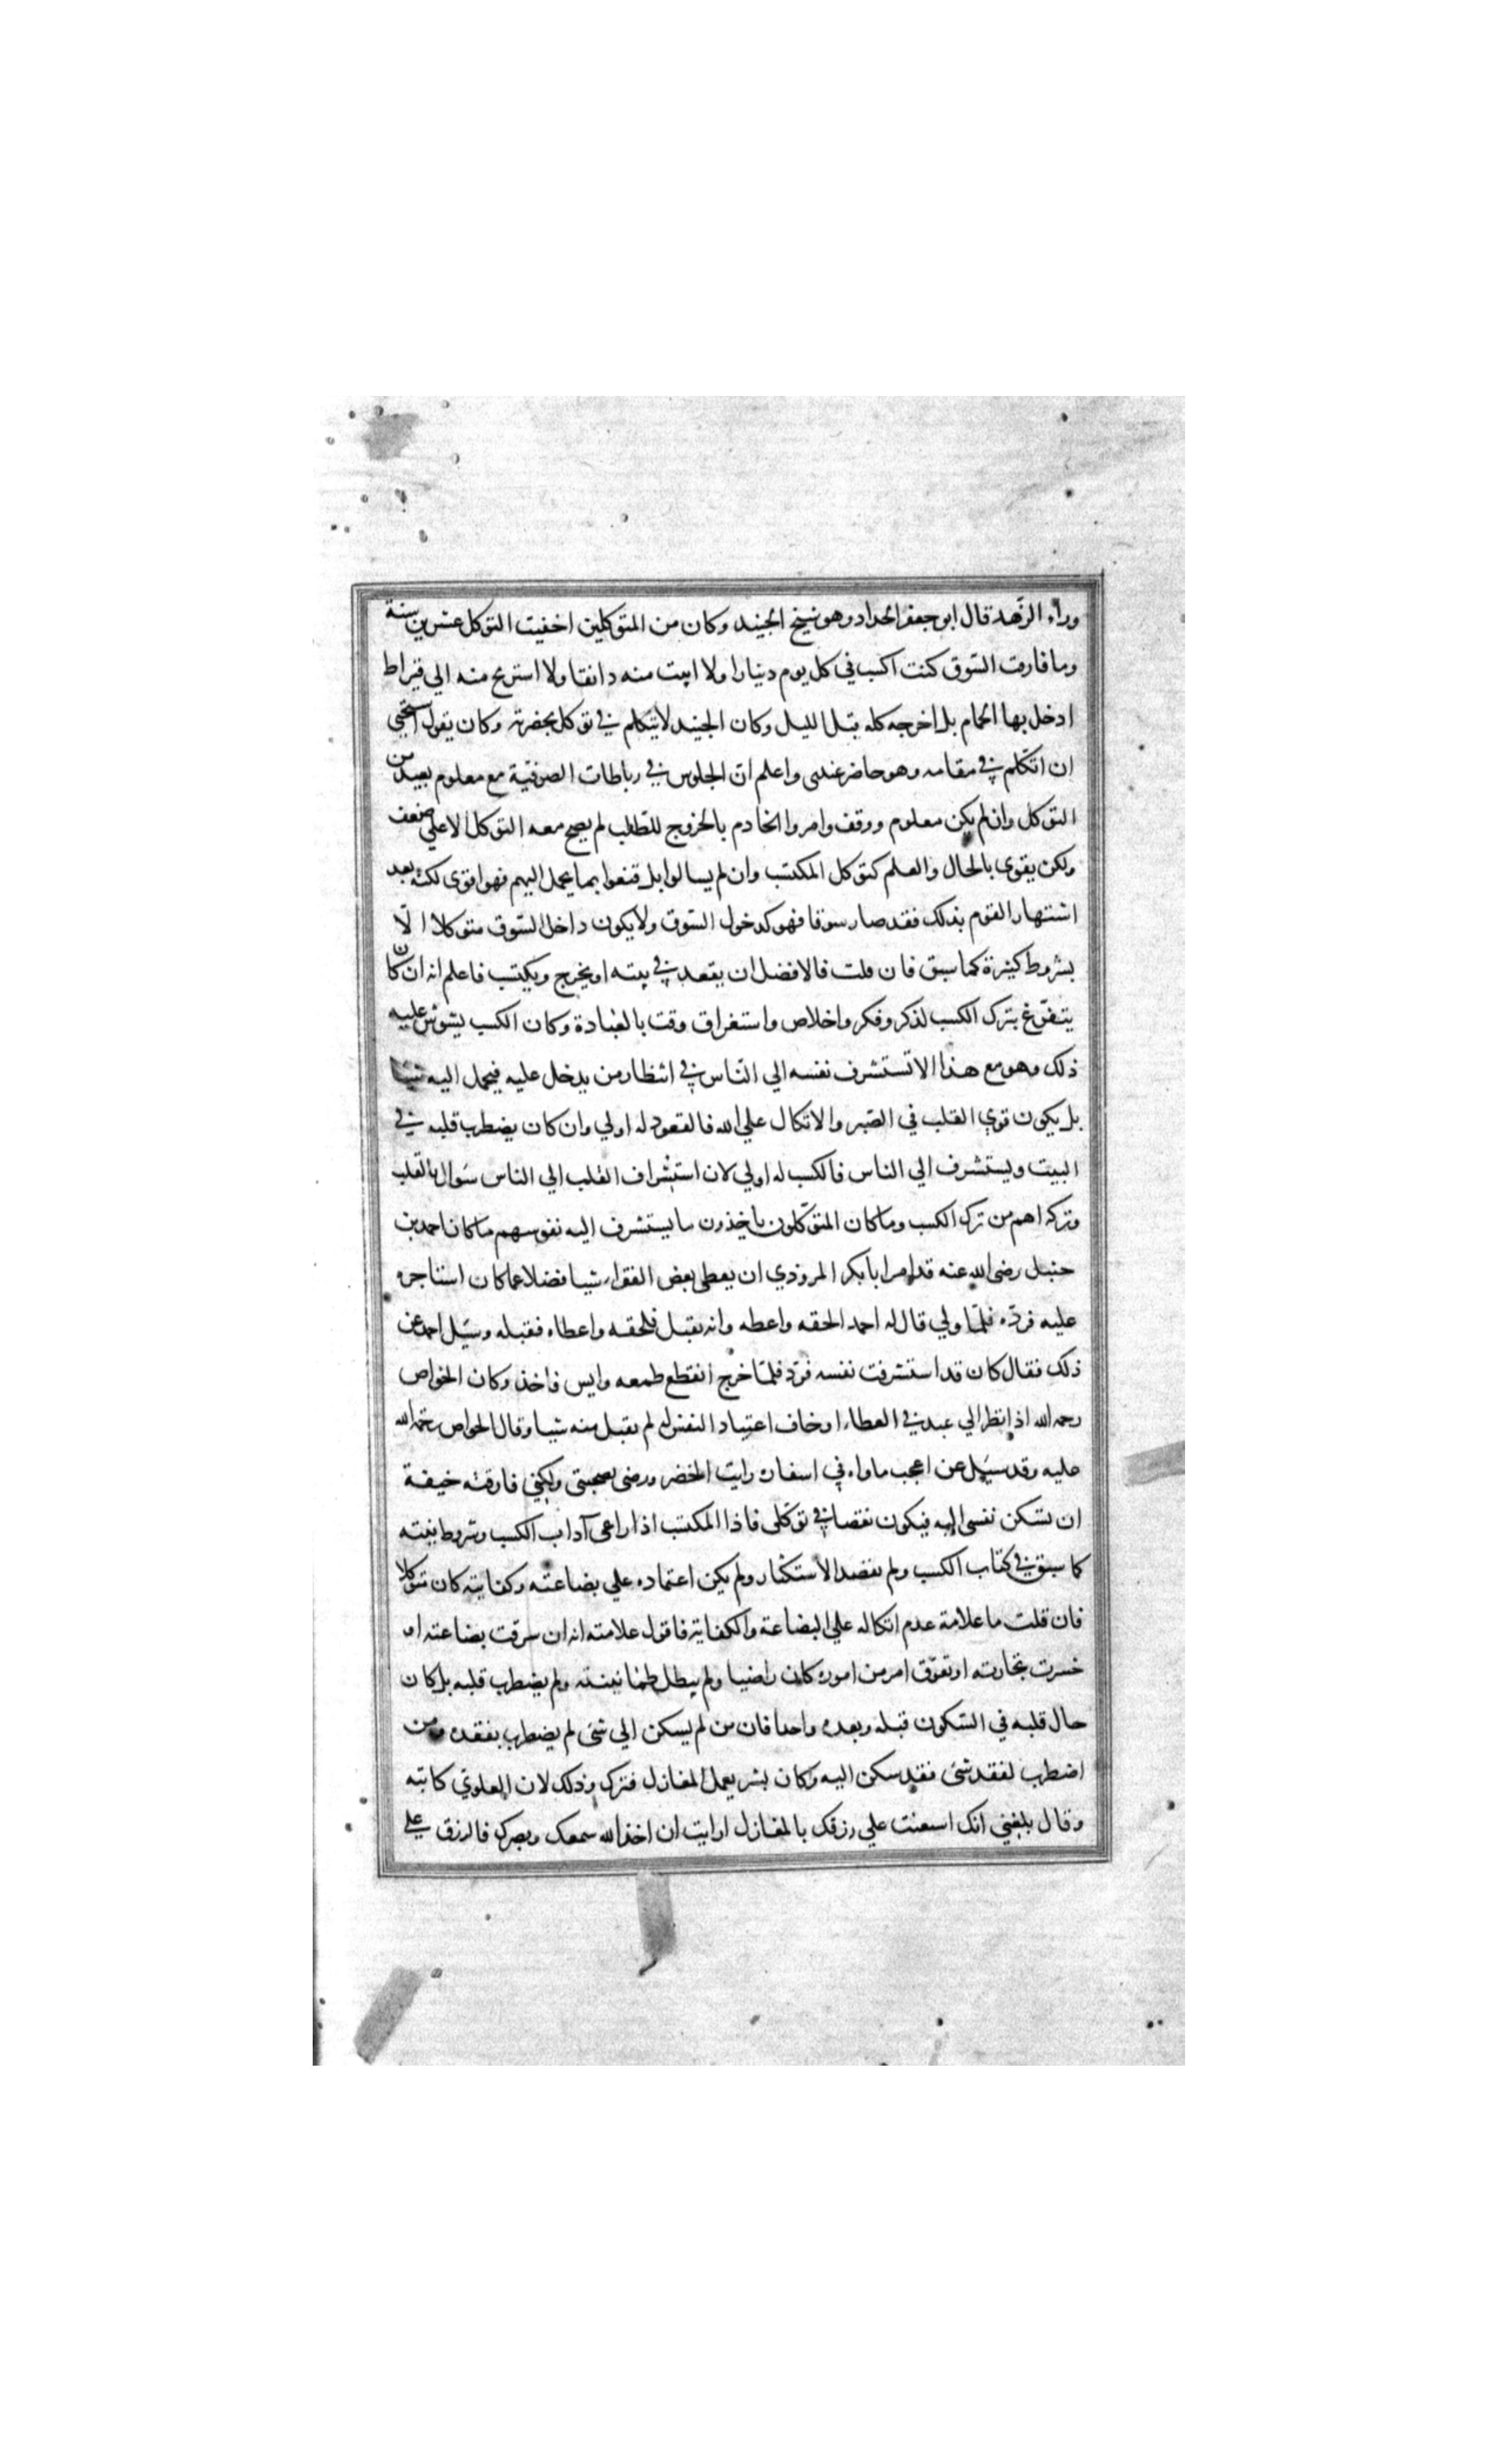 وراء الزهد قال ابو جعفر الحداد وهو شيخ الجنيد وكان من المتوكلين اخفيت التوكل عشرين سنة
وما فارقت السّوق كنت اكسب في كل يوم دينارا ولا ابيت منه دانقا ولا استريح منه الي قيراط
ادخل بها الحمام بل اخرجه كله قبل الليل وكان الجنيد لا يتكلم في توكل بحضرته وكان يقول استحيي
ان اتكلم في مقامه وهو حاضر عندى واعلم ان الجلوس في رباطات الصوفية مع معلوم بعيد من
التوكل وان لم يكن معلوم ووقف وامروا الخادم بالخروج للطلب لم يصح معه التوكل الا علي ضعف
ولكن يقوى بالحال والعلم كتوكل المكتسب وان لم يسالوا بل قنعوا بما يحمل اليهم فهو اقوى لكنه بعد
اشتهار القوم بذلك فقد صار سوقا فهو كدخول السّوق ولا يكون داخل السّوق متوكلا الّا
بشروط كثيرة كما سبق فان قلت فالافضل ان يقعد في بيته او يخرج ويكتسب فاعلم انه ان كان
يتفرّغ بترك الكسب لذكر وفكر واخلاص واستغراق وقت بالعبادة وكان الكسب يشوش عليه
ذلك وهو مع هذا لا تستشرف نفسه الي النّاس في انتظار من يدخل عليه فيحمل اليه شيئا
بل يكون قوي القلب في الصّبر والاتكال علي الله فالقعود له اولي وان كان يضطرب قلبه في
البيت ويستشرف الي الناس فالكسب له اولي لان استشراف القلب الي الناس سؤال بالقلب
وتركه اهم من ترك الكسب وما كان المتوكّلون ياخذون ما يستشرف اليه نفوسهم ما كان احمد بن
حنبل رضى الله عنه قد امر ابا بكر المروذي ان يعطى بعض الفقراء شيا فضلا عما كان استاجره
عليه فردّه فلمّا ولي قال له احمد الحقه واعطه وانه يقبل فلحقه واعطاه فقبله وسيل احمد عن
ذلك فقال كان قد استشرفت نفسه فردّ فلمّا خرج انقطع طمعه وايس فاخذ وكان الخواص
رحمه الله اذا نظر الي عبد في العطاء او خاف اعتياد النفس له لم يقبل منه شيا وقال الخواص رحمة الله
عليه وقد سيل عن اعجب ما راه في اسفاره رايت الخضر ورضى بصحبتى ولكني فارقته خيفة
ان تسكن نفسى اليه فيكون نقصا في توكلى فاذا المكتسب اذا راعى آداب الكسب وشروط نيته
كما سبق في كتاب الكسب ولم يقصد الاستكثار ولم يكن اعتماده علي بضاعته وكفايته كان متوكلا
فان قلت ما علامة عدم اتكاله علي البضاعة والكفاية فاقول علامته انه ان سرقت بضاعته او
خسرت تجارته او تعوّق امر من اموره كان راضيا ولم يبطل طمانينته ولم يضطرب قلبه بل كان
حال قلبه في السّكون قبله وبعده واحدا فان من لم يسكن الي شئ لم يضطرب بفقده ومن
اضطرب لفقد شئ فقد سكن اليه وكان بشر يعمل المغازل فترك وذلك لان العلوي كاتبه
وقال بلغنى انك استعنت علي رزقك بالمغازل ارايت ان اخذ الله سمعك وبصرك فالرزق علي